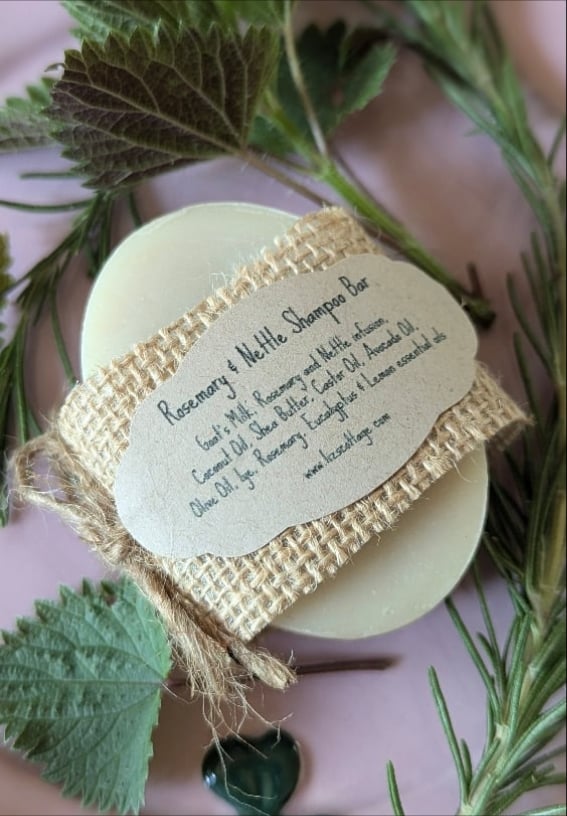 Rosemary & Nettle Shampoo Bar
Goat's Milk, Rosemary and Nettle infusion,
Coconut Oil, Shea Butter, Castor Oil, Avocado Oil,
Olive Oil, lye, Rosemary, Eucalyptus & Lemon essential oils
www.lizscottage.com